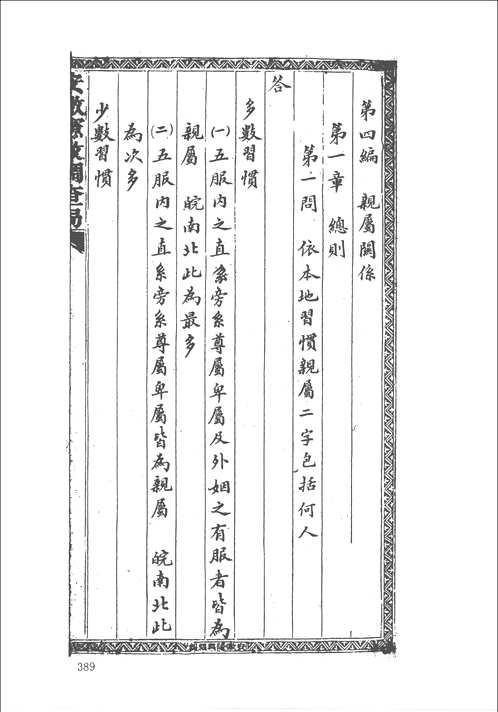 第四編 親屬關係
第一章 總則
第一問 依本地習慣親屬二字包括何人
答
多數習慣
㈠五服內之直系旁系尊屬卑屬及外姻之有服者皆為
親屬 皖南北此為最多
㈡五服內之直系旁系尊屬卑屬皆為親屬 皖南北此
為次多
少數習慣
安徽憲政調查局
389